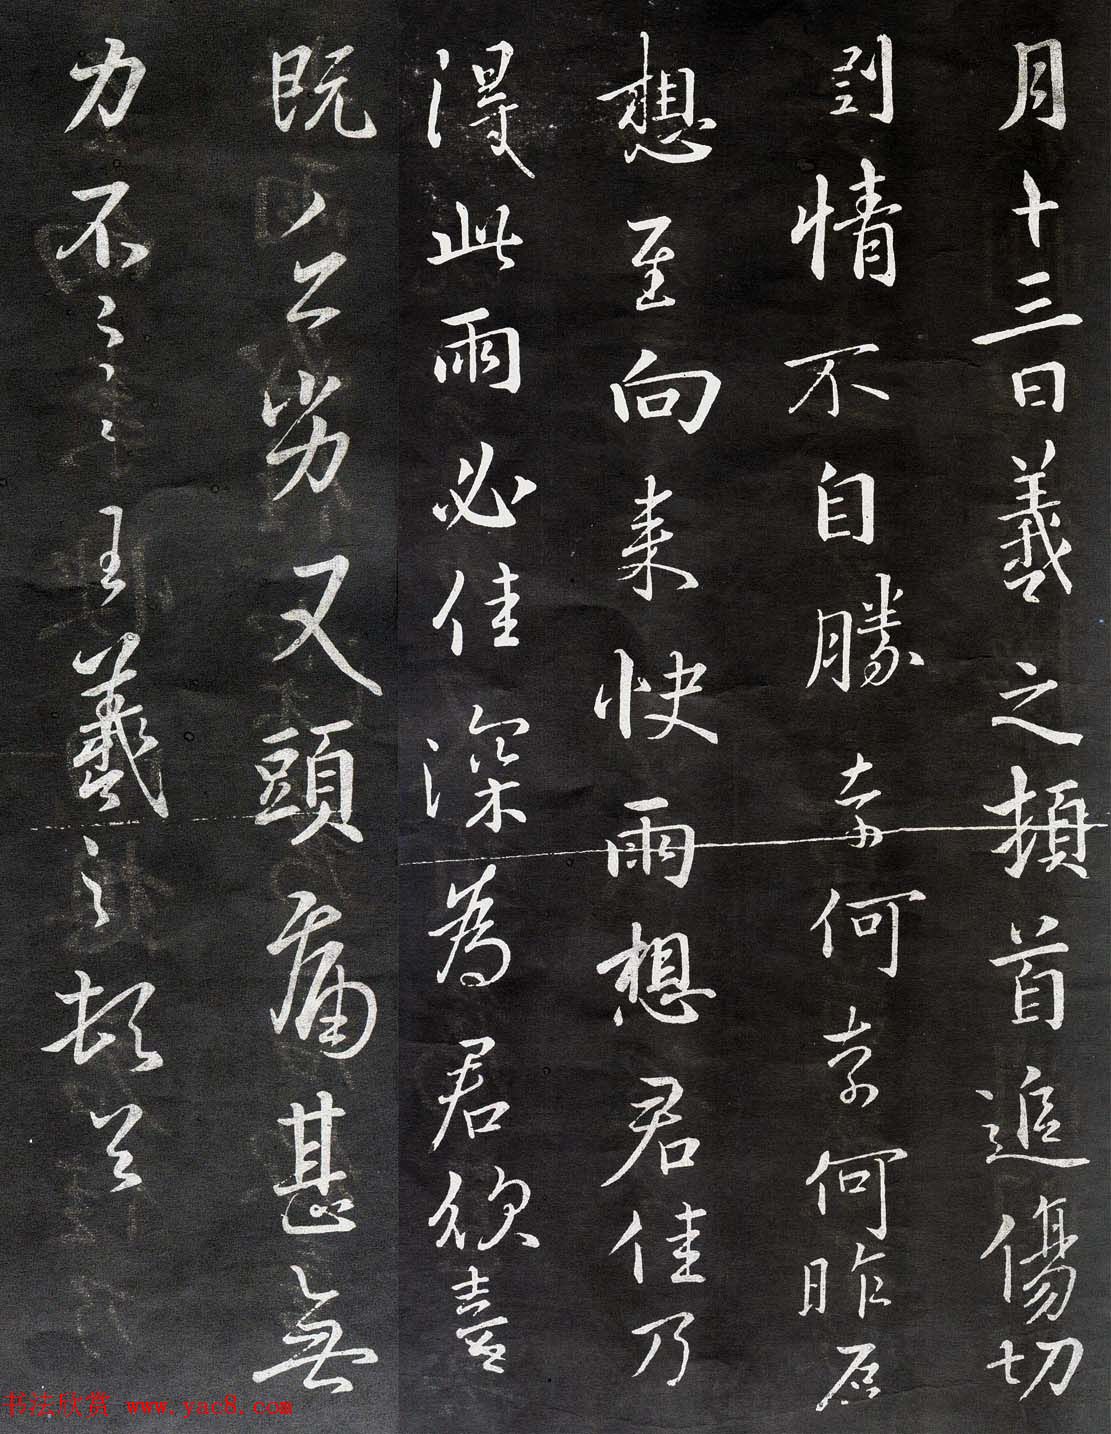 月十三日羲之頓首追傷切
割情不自勝奈何奈何昨
想至向來快雨想君佳乃
得此雨必佳深為君欣喜
既勞又頭痛甚無
力不王羲之頓首
书法欣赏 www.yac8.com